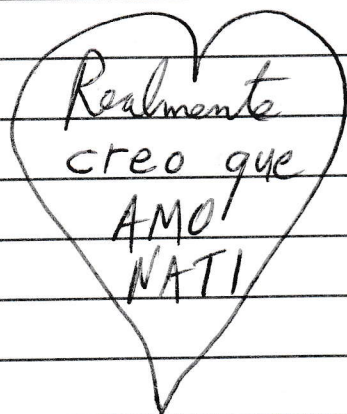 Realmente
creo que
AMO
NATI